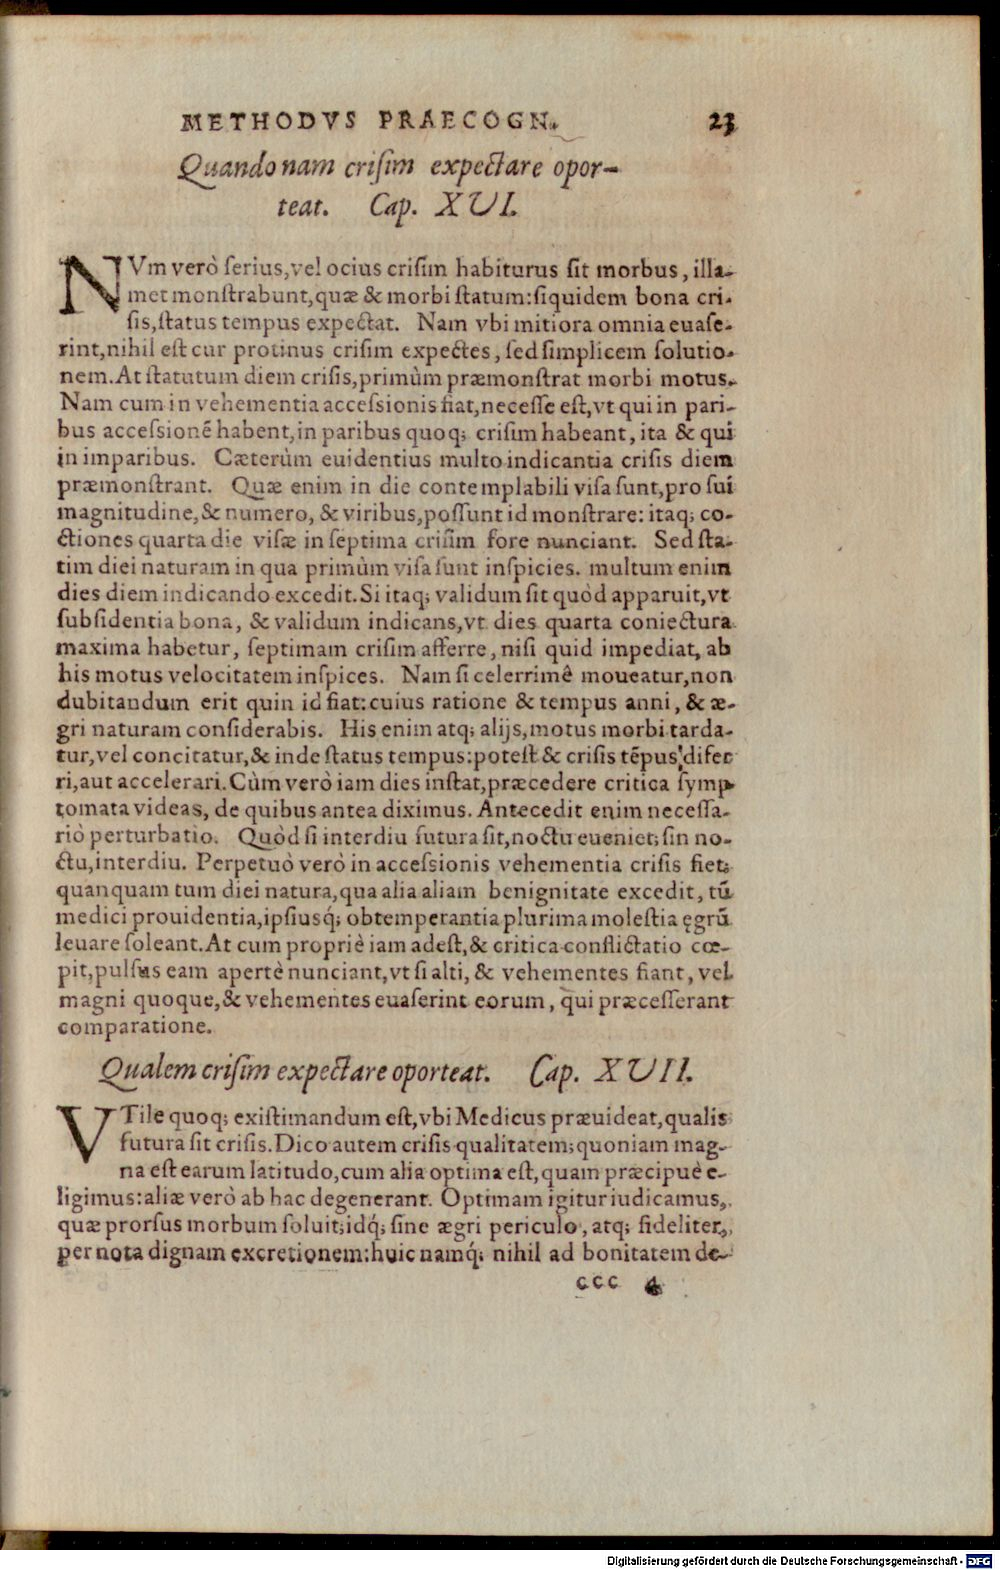 METHODVS PRAECOGN. 23
Quando nam criſim expectare opor-
teat. Cap. XVI.
NVm verò ſerius, vel ocius criſim habiturus ſit morbus, illa-
met monſtrabunt, quæ & morbi ſtatum: ſiquidem bona cri-
ſis, ſtatus tempus expectat. Nam vbi mitiora omnia euaſe-
rint, nihil eſt cur protinus criſim expectes, ſed ſimplicem ſolutio-
nem. At ſtatutum diem criſis, primùm præmonſtrat morbi motus.
Nam cum in vehementia acceſsionis fiat, neceſſe eſt, vt qui in pari-
bus acceſsionē habent, in paribus quoq; criſim habeant, ita & qui
in imparibus. Cæterùm euidentius multo indicantia criſis diem
præmonſtrant. Quæ enim in die contemplabili viſa ſunt, pro ſui
magnitudine, & numero, & viribus, poſſunt id monſtrare: itaq; co-
ctiones quarta die viſæ in ſeptima criſim fore nunciant. Sed ſta-
tim diei naturam in qua primùm viſa ſunt inſpicies. multum enim
dies diem indicando excedit. Si itaq; validum ſit quòd apparuit, vt
ſubſidentia bona, & validum indicans, vt dies quarta coniectura
maxima habetur, ſeptimam criſim afferre, niſi quid impediat, ab
his motus velocitatem inſpices. Nam ſi celerrimê moueatur, non
dubitandum erit quin id fiat: cuius ratione & tempus anni, & æ-
gri naturam conſiderabis. His enim atq; alijs, motus morbi tarda-
tur, vel concitatur, & inde ſtatus tempus: poteſt & criſis tēpus differ
ri, aut accelerari. Cùm verò iam dies inſtat, præcedere critica ſymp
tomata videas, de quibus antea diximus. Antecedit enim neceſſa-
riò perturbatio. Quòd ſi interdiu futura ſit, noctu eueniet; ſin no-
ctu, interdiu. Perpetuò verò in acceſsionis vehementia criſis fiet;
quanquam tum diei natura, qua alia aliam benignitate excedit, tū
medici prouidentia, ipſiusq́; obtemperantia plurima moleſtia ęgrū
leuare ſoleant. At cum propriè iam adeſt, & critica conflictatio cœ-
pit, pulſus eam apertè nunciant, vt ſi alti, & vehementes fiant, vel
magni quoque, & vehementes euaſerint eorum, qui præceſſerant
comparatione.
Qualem criſim expectare oporteat. Cap. XVII.
VTile quoq; exiſtimandum eſt, vbi Medicus præuideat, qualis
futura ſit criſis. Dico autem criſis qualitatem; quoniam mag-
na eſt earum latitudo, cum alia optima eſt, quam præcipuè e-
ligimus: aliæ verò ab hac degenerant. Optimam igitur iudicamus,
quæ prorſus morbum ſoluit; idq́; ſine ægri periculo, atq; fideliter,
per nota dignam excretionem: huic namq́; nihil ad bonitatem de-
ccc 4
Digitalisierung gefördert durch die Deutsche Forschungsgemeinschaft - DFG